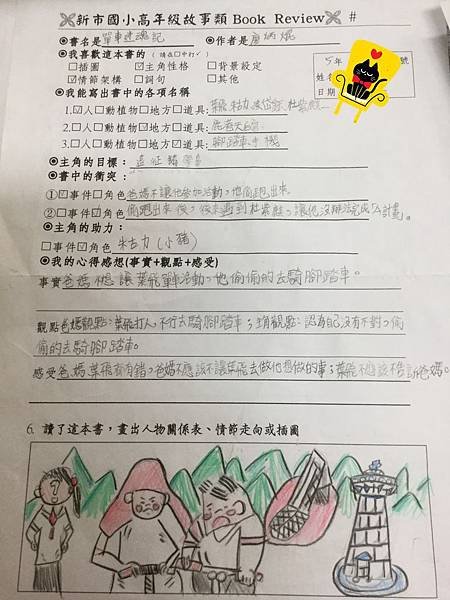 新市國小高年級故事類 Book Review #
◉書名是單車迷魂記 ◉作者是廖炳焜
◉我喜歡這本書的（請在□中打✓）
□插圖 ☑主角性格 □背景設定
☑情節架構 □詞句 □其他
5年 號
姓名
日期
◉我能寫出書中的各項名稱
1.☑人□動植物□地方□道具:葉飛 朱古力
2.□人□動植物☑地方□道具:
3.□人□動植物□地方☑道具:腳踏車、手機
◉主角的目標：
◉書中的衝突：
①☑事件□角色爸媽不讓他參加活動，他偷跑出來
②□事件☑角色偷跑出來後，後來遇到杜紫薇，讓他沒辦法完成「A計畫」。
◉主角的助力：
□事件☑角色朱古力(小豬)
◉我的心得感想(事實+觀點+感受)
事實爸媽不想讓葉飛單車活動，他偷偷的去騎腳踏車。
觀點爸媽觀點：葉飛打人，不行去騎腳踏車；主角觀點：認為自己沒有不對，偷
偷的去騎腳踏車。
感受爸媽、葉飛有有錯，爸媽不應該不讓葉飛去做他想做的事；葉飛不應該不告訴爸媽。
6. 讀了這本書，畫出人物關係表、情節走向或插圖